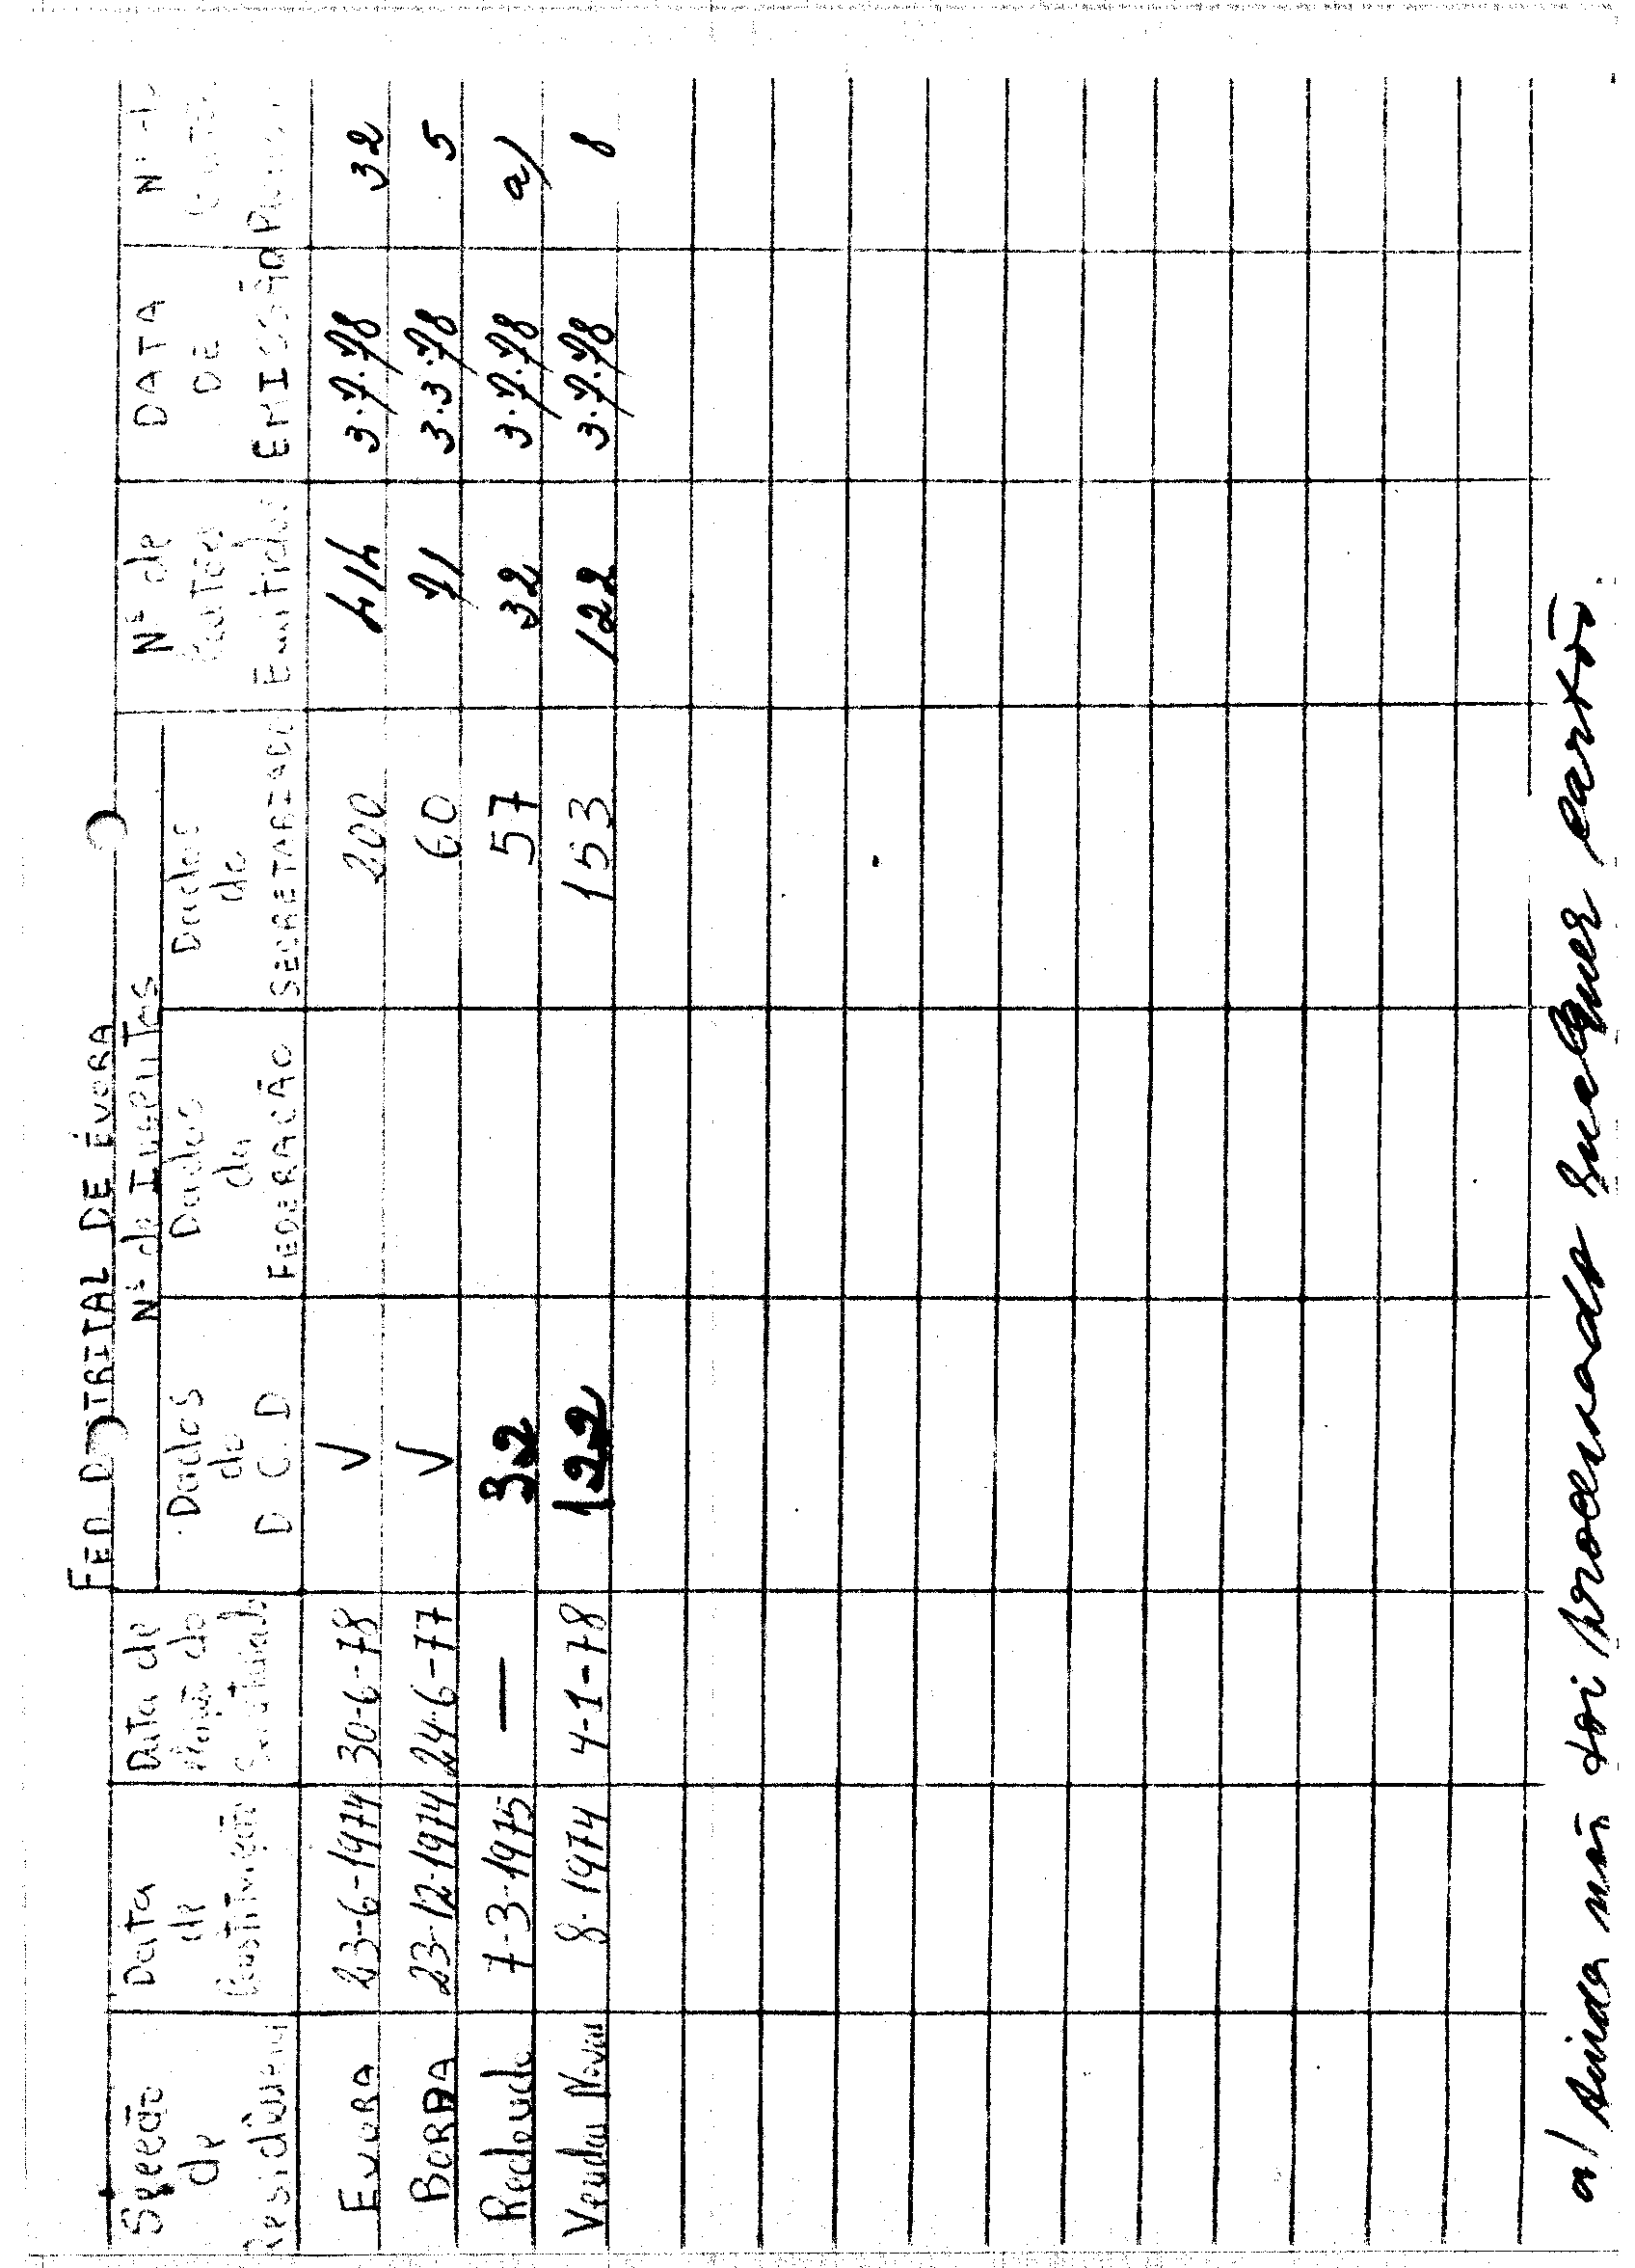 FED DISTRITAL DE ÉVORA
Nº de Inscritos
Secção de Residência
Data de Constituição
Data de
Dados do D C. D
Dados da FEDERAÇÃO
Dados do SECRETARIADO
Nº de Cartões Emitidos
DATA DE EMISSÃO
Nº de
EVORA 23-6-1974 30-6-78 √ 200 414 3.7.78 32
BORBA 23-12-1974 24-6-77 √ 60 71 3.3.78 5
Redondo 7-3-1975 — 32 57 32 3.7.78 a)
Vendas Novas 8-1974 4-1-78 122 153 122 3.7.78 8
a) Ainda não foi processado qualquer cartão.